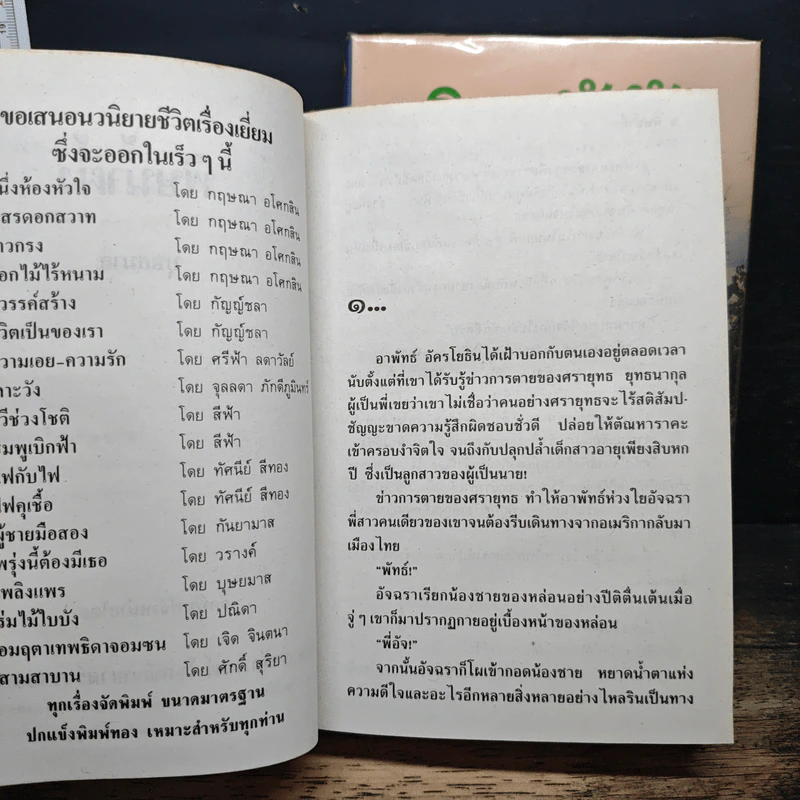 ขอเสนอนวนิยายชีวิตเรื่องเยี่ยม
ซึ่งจะออกในเร็ว ๆ นี้
นึ่งห้องหัวใจ โดย กฤษณา อโศกสิน
สรดอกสวาท โดย กฤษณา อโศกสิน
าวกรง โดย กฤษณา อโศกสิน
อกไม้ไร้หนาม โดย กฤษณา อโศกสิน
วรรค์สร้าง โดย กัญญ์ชลา
วิตเป็นของเรา โดย กัญญ์ชลา
วามเอย-ความรัก โดย ศรีฟ้า ลดาวัลย์
าะวัง โดย จุลลดา ภักดีภูมินทร์
วีช่วงโชติ โดย สีฟ้า
รมพูเบิกฟ้า โดย สีฟ้า
ฟกับไฟ โดย ทัศนีย์ สีทอง
ฟคุเชื้อ โดย ทัศนีย์ สีทอง
ผู้ชายมือสอง โดย กันยามาส
พรุ่งนี้ต้องมีเธอ โดย วรางค์
พลิงแพร โดย บุษยมาส
ร่มไม้ใบบัง โดย ปณิดา
อมฤตาเทพธิดาจอมซน โดย เจิด จินตนา
สามสาบาน โดย ศักดิ์ สุริยา
ทุกเรื่องจัดพิมพ์ ขนาดมาตรฐาน
ปกแข็งพิมพ์ทอง เหมาะสำหรับทุกท่าน
๑...
อาพัทธ์ อัครโยธินได้เฝ้าบอกกับตนเองอยู่ตลอดเวลา
นับตั้งแต่ที่เขาได้รับรู้ข่าวการตายของศรายุทธ ยุทธนากุล
ผู้เป็นพี่เขยว่าเขาไม่เชื่อว่าคนอย่างศรายุทธจะไร้สติสัมป-
ชัญญะขาดความรู้สึกผิดชอบชั่วดี ปล่อยให้ตัณหาราคะ
เข้าครอบงำจิตใจ จนถึงกับปลุกปล้ำเด็กสาวอายุเพียงสิบหก
ปี ซึ่งเป็นลูกสาวของผู้เป็นนาย!
ข่าวการตายของศรายุทธ ทำให้อาพัทธ์ห่วงใยอัจฉรา
พี่สาวคนเดียวของเขาจนต้องรีบเดินทางจากอเมริกากลับมา
เมืองไทย
“พัทธ์!”
อัจฉราเรียกน้องชายของหล่อนอย่างปีติตื่นเต้นเมื่อ
จู่ ๆ เขาก็มาปรากฏกายอยู่เบื้องหน้าของหล่อน
“พี่อัจ!”
จากนั้นอัจฉราก็โผเข้ากอดน้องชาย หยาดน้ำตาแห่ง
ความดีใจและอะไรอีกหลายสิ่งหลายอย่างไหลรินเป็นทาง